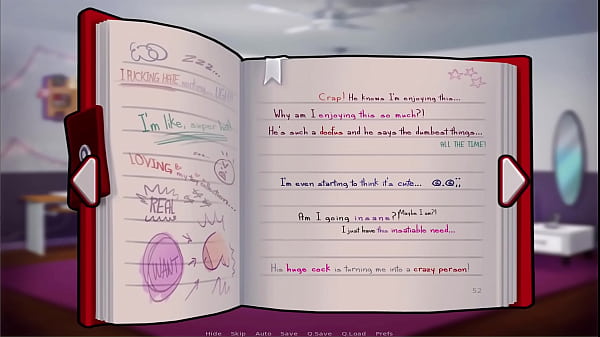 Zzz...
I FUCKING HATE
I'm like, super
LOVING
my
REAL
WANT
Crap! He knows I'm enjoying this...
Why am I enjoying this so much?!
He's such a doofus and he says the dumbest things...
ALL THE TIME!
I'm even starting to think it's cute...
Am I going insane? (Maybe I am?)
I just have this insatiable need...
His huge cock is turning me into a crazy person!
52
Hide Skip Auto Save Q.Save Q.Load Prefs